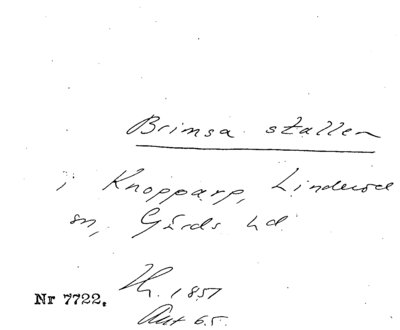 Brimsa stallen
i Knopparp, Linderöd
sn, Gärds hd
1851
Nr 7722.
Ant 65.